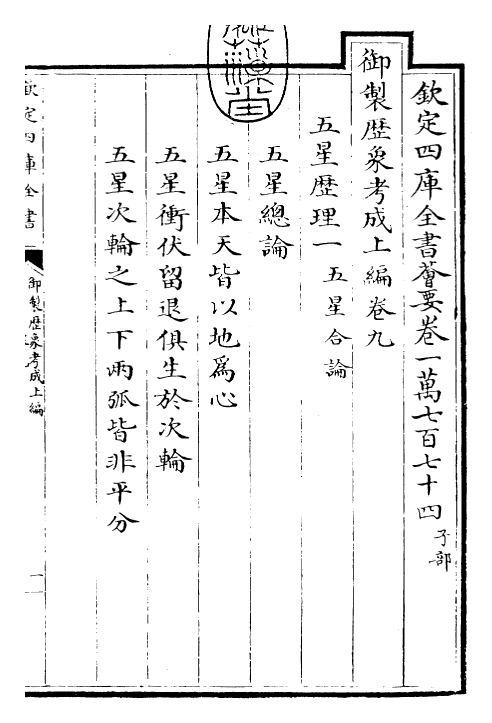 欽定四庫全書薈要卷一萬七百七十四 子部
御製歷象考成上編卷九
五星歷理一 五星合論
五星總論
五星本天皆以地為心
五星衝伏留退俱生於次輪
五星次輪之上下兩弧皆非平分
欽定四庫全書
御製歷象考成上編